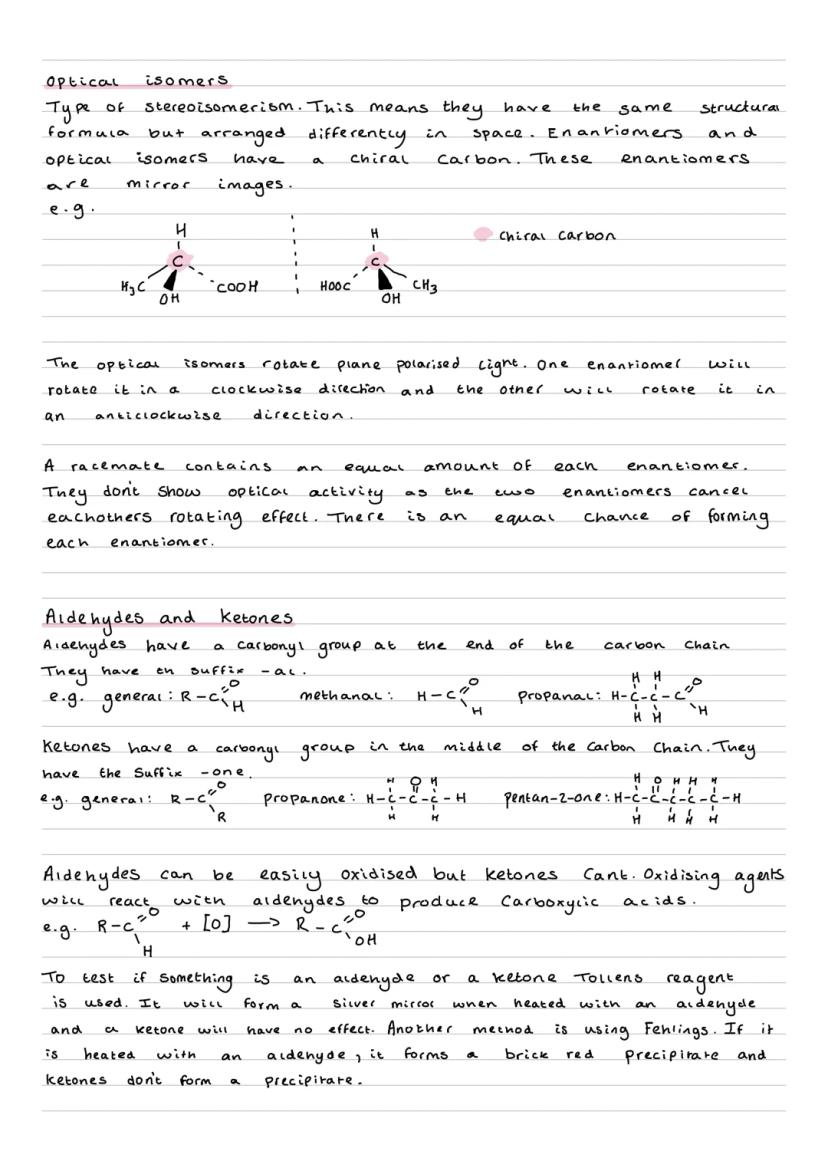 Optical isomers
Type of stereoisomerism. This means they have the same structural
formula but arranged differently in space. Enantiomers and
optical isomers have a chiral carbon. These enantiomers
are mirror images.
e.g.
H H chiral carbon
C C
H3C OH COOH HOOC OH CH3
The optical isomers rotate plane polarised light. One enantiomer will
rotate it in a clockwise direction and the other will rotate it in
an anticlockwise direction.
A racemate contains an equal amount of each enantiomer.
They don't show optical activity as the two enantiomers cancel
eachothers rotating effect. There is an equal chance of forming
each enantiomer.
Aldehydes and ketones
Aldehydes have a carbonyl group at the end of the carbon chain
They have th suffix -al.
e.g. general: R-C=O H methanal: H-C=O H propanal: H-C-C-C=O H H H H H
Ketones have a carbonyl group in the middle of the carbon chain. They
have the suffix -one.
e.g. general: R-C=O R propanone: H-C-C-C-H H O H H H pentan-2-one: H-C-C-C-C-C-H H O H H H H H H H
Aldehydes can be easily oxidised but ketones cant. Oxidising agents
will react with aldehydes to produce carboxylic acids.
e.g. R-C=O H + [O] → R-C=O OH
To test if something is an aldehyde or a ketone Tollens reagent
is used. It will form a silver mirror when heated with an aldehyde
and a ketone will have no effect. Another method is using Fehlings. If it
is heated with an aldehyde, it forms a brick red precipitate and
ketones don't form a precipitate.